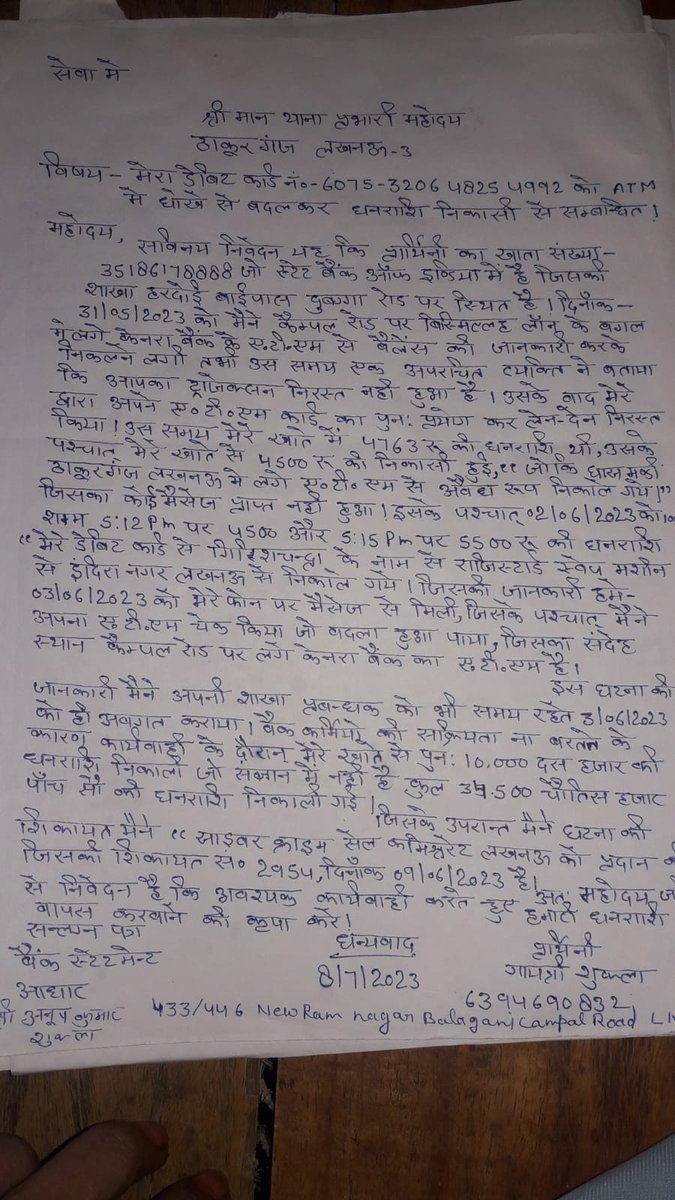 सेवा मे
श्री मान थाना प्रभारी महोदय
ठाकूर गंज लखनऊ-3
विषय - मेरा डेबिट कार्ड नं०-6075-3206 4825 4992 को ATM
मे धोखे से बदलकर धनराशि निकासी से सम्बन्धित !
महोदय, सविनय निवेदन यह कि प्रार्थिनी का खाता संख्या-
35186178888 जो स्टेट बैंक ऑफ इण्डिया मे है जिसकी
शाखा हरदोई बाईपास दुबग्गा रोड पर स्थित है। दिनाँक-
31/05/2023 को मैने कैम्पल रोड पर बिस्मिल्लाह लॉन के बगल
मे लगे केनरा बैंक के ए.टी.एम से बैलेंस की जानकारी करके
निकलने लगी तभी उस समय एक अपरिचत व्यक्ति ने बताया
कि आपका ट्रांजेक्सन निरस्त नही हुआ है। उसके बाद मेरे
द्वारा अपने ए०टी०एम कार्ड का पुन: प्रयोग कर लेन-देन निरस्त
किया। उस समय मेरे खाते मे 4763 रू की धनराशि थी, उसके
पश्चात् मेरे खाते से 4500 रू की निकासी हुई, "जो कि
ठाकुरगंज लखनऊ मे लगे ए०टी०एम से अवैध रूप निकाले गये।"
जिसका कोई मैसेज प्राप्त नहीं हुआ। इसके पश्चात् 02/06/2023 को
शाम 5:12 Pm पर 4500 और 5:15 Pm पर 5500 रू की धनराशि
"मेरे डेबिट कार्ड से गिरिशचन्द्रा के नाम से राजिस्टर्ड स्वेप मशीन
से इंदिरा नगर लखनऊ से निकाले गये। जिसकी जानकारी हमे-
03/06/2023 को मेरे फोन पर मैसेज से मिली, जिसके पश्चात् मैने
अपना ए.टी.एम चेक किया जो बदला हुआ पाया, जिसका संदेह
स्थान कैम्पल रोड पर लगे केनरा बैंक का ए.टी.एम है।
इस घटना की
जानकारी मैने अपनी शाखा प्रबन्धक को भी समय रहते 3/06/2023
को ही अवगत कराया। बैंक कर्मियो की सक्रियता ना बरतने के
कारण कार्यवाही के दौरान मेरे खाते से पुन: 10,000 दस हजार की
धनराशि निकाली जो संज्ञान मे नही है कुल 34.500 चौतिस हजार
पाँच सौ की धनराशि निकाली गई।
जिसके उपरान्त मैने घटना की
शिकायत मैने "साइबर क्राइम सेल कमिश्नरेट लखनऊ को प्रदान की
जिसकी शिकायत स० 2954, दिनाँक 09/06/2023 है।
अत: महोदय जी
से निवेदन है कि आवश्यक कार्यवाही करते हुए हमारी धनराशि
वापस करवाने की कृपा करे।
सन्लग्न पत्र
बैंक स्टेटमेन्ट
आधार
धन्यवाद
8/7/2023
प्रार्थिनी
गायत्री शुक्ला
6394690832
श्री अनूप कुमार
शुक्ला
433/446 New Ram nagar Balaganj Campal Road